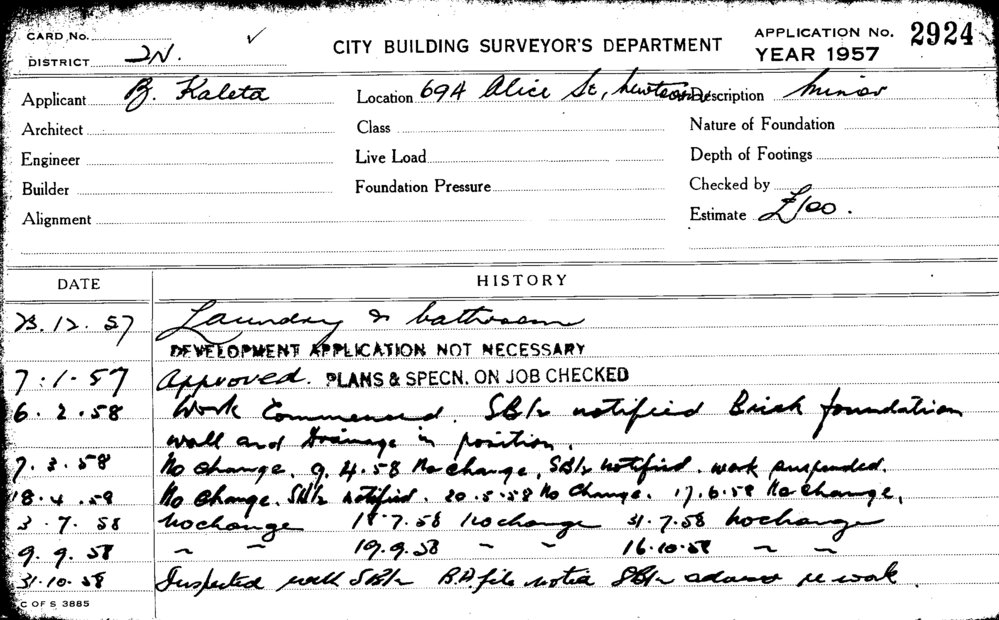 CARD No.
DISTRICT 2N.
CITY BUILDING SURVEYOR'S DEPARTMENT
APPLICATION No. 2924
YEAR 1957
Applicant B. Kaleta Location 694 Alice St, Newtown Description Minor
Architect Class Nature of Foundation
Engineer Live Load Depth of Footings
Builder Foundation Pressure Checked by
Alignment Estimate £100.
DATE HISTORY
23.12.57 Laundry & bathroom
DEVELOPMENT APPLICATION NOT NECESSARY
7.1.57 Approved. PLANS & SPECN. ON JOB CHECKED
6.2.58 Work Commenced. SB/r notified Brick foundation
wall and drainage in position.
7.3.58 No change. 9.4.58 No change, SB/r notified. work suspended.
18.4.58 No change. SB/r notified. 20.5.58 No change. 17.6.58 No change.
3.7.58 No change 18.7.58 No change 31.7.58 No change
9.9.58 ~ ~ 19.9.58 ~ ~ 16.10.58 ~ ~
31.10.58 Inspected with SB/r B.A. file noted SB/r re work.
C OF S 3885